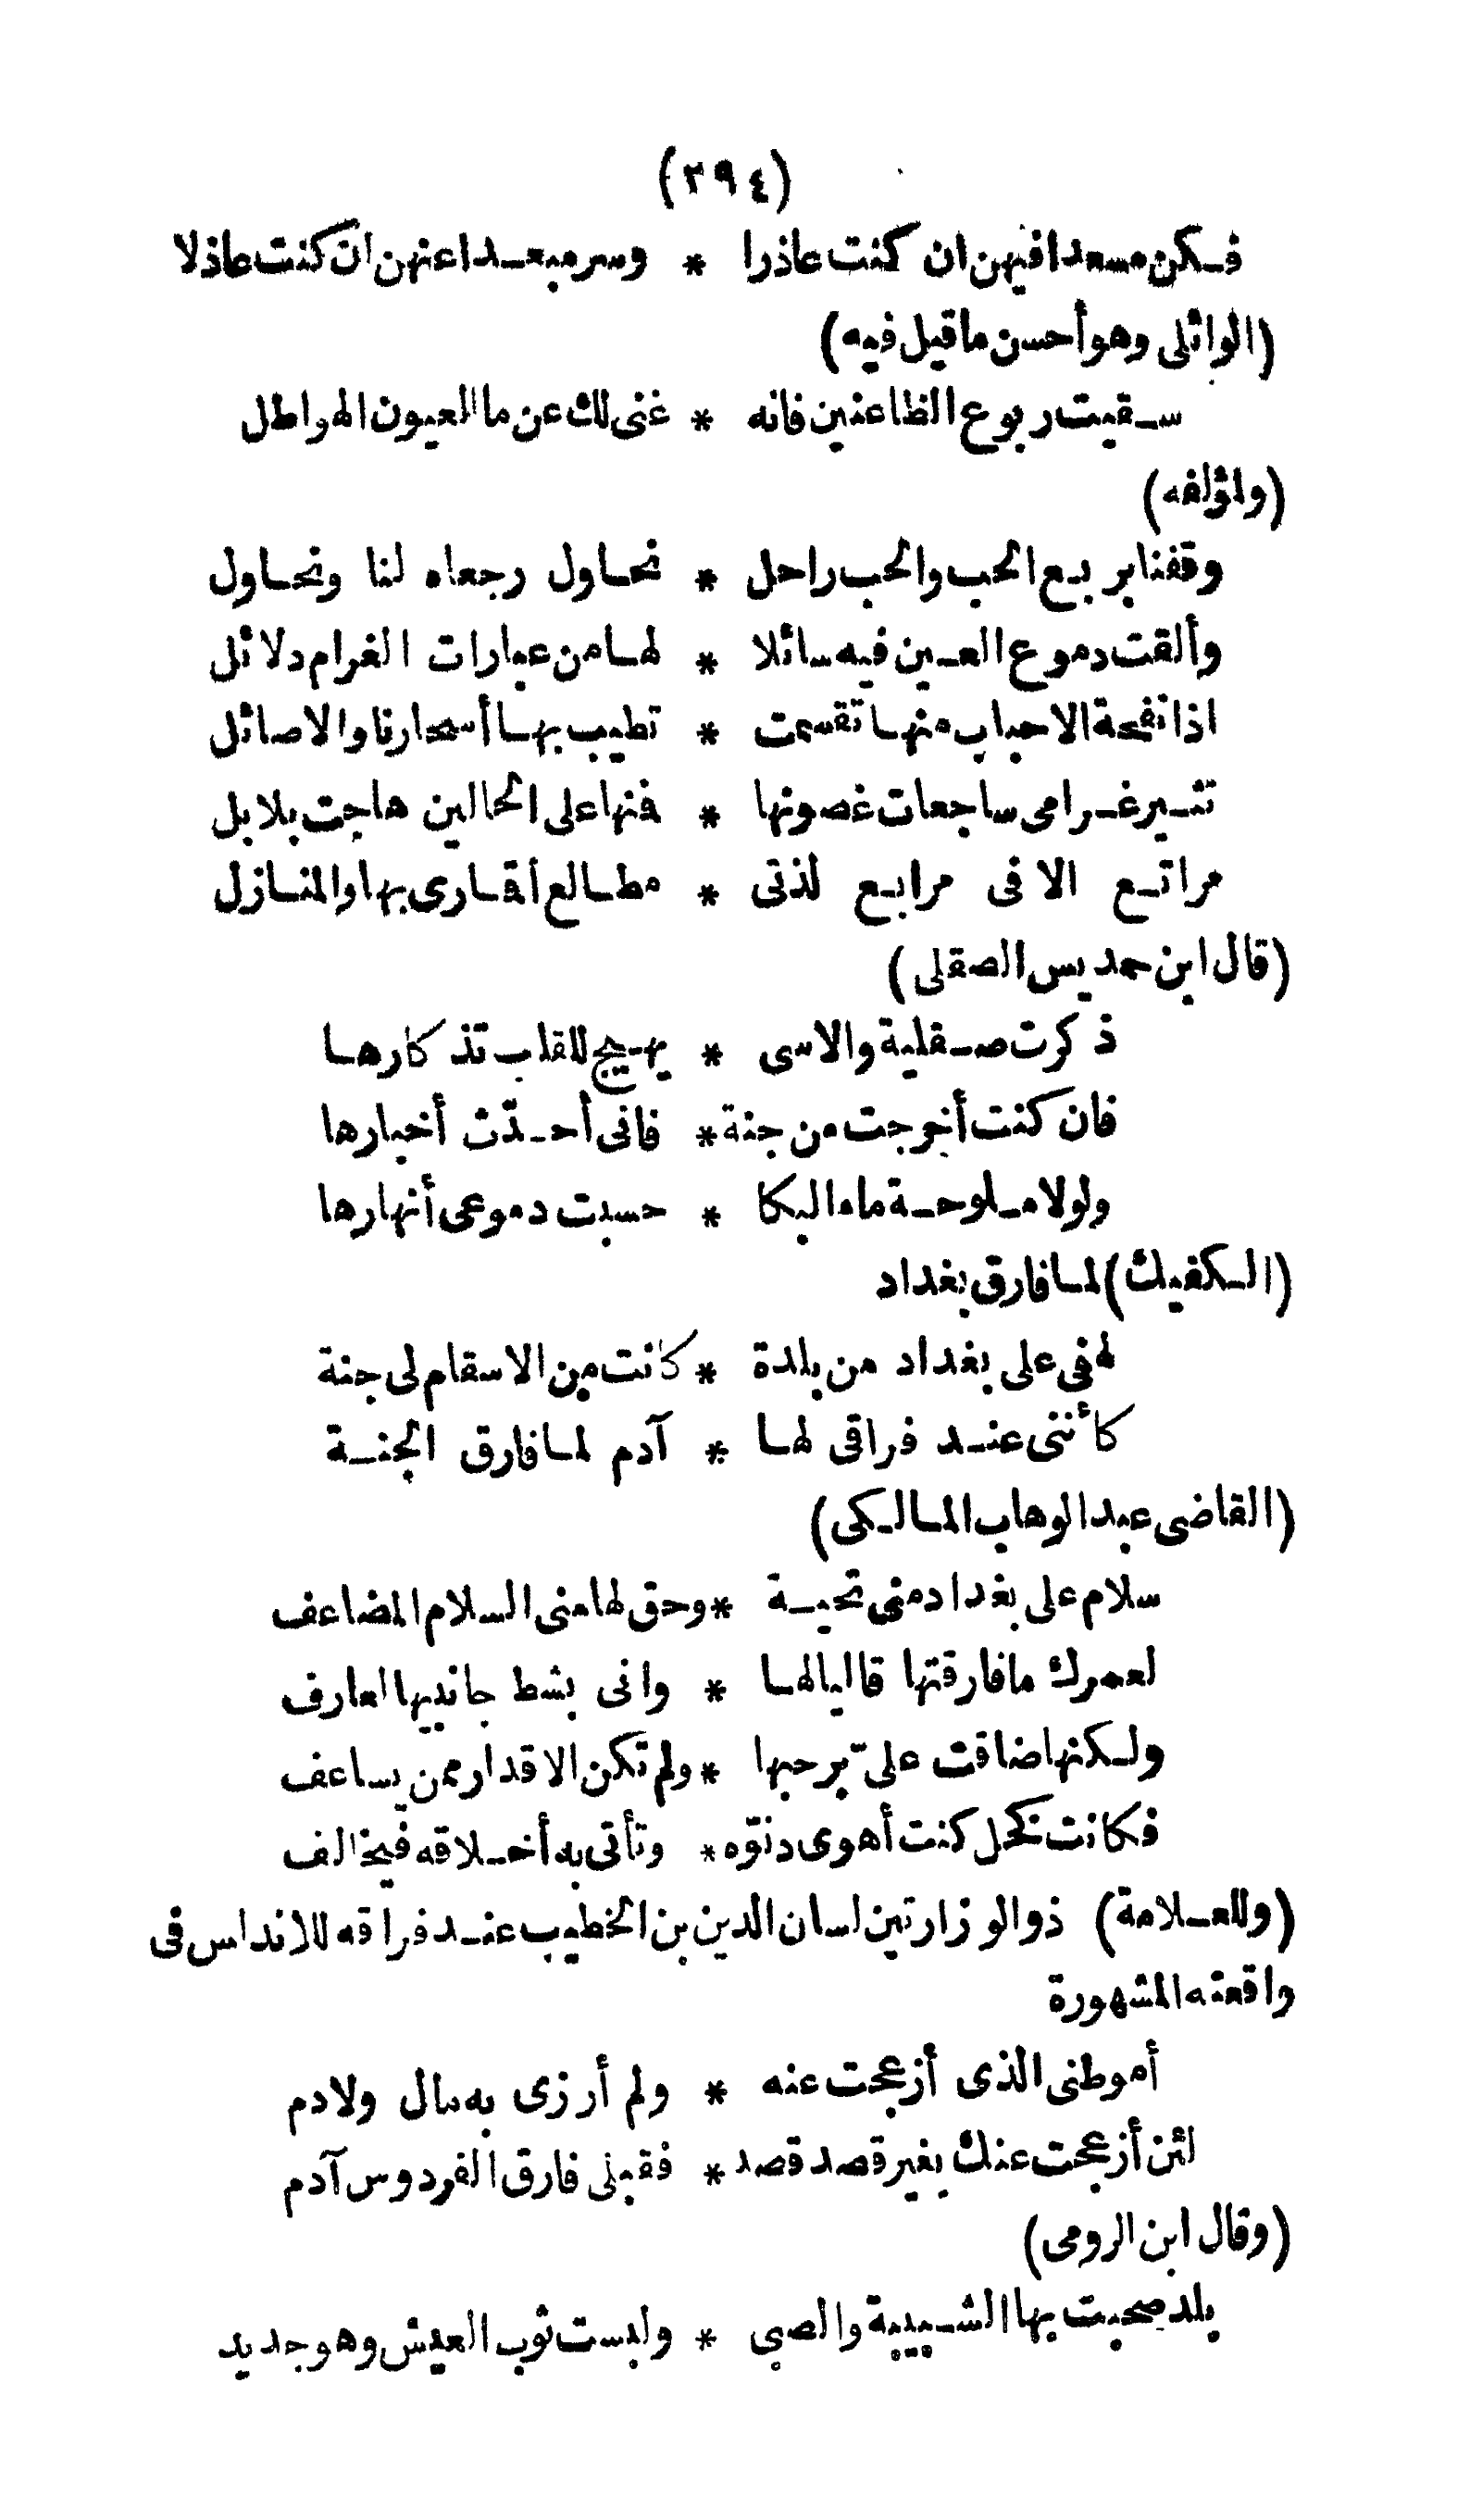 (٢٩٤)
فكن مسعدا فيهن ان كنت عاذرا * وسر مبعدا عنهن ان كنت عاذلا
(الوائلى وهو أحسن ما قيل فيه)
سقيت ربوع الظاعنين فانه * غنى لك عن ما العيون الهواطل
(ولمؤلفه)
وقفنا بربع الحب والحب راحل * نحاول رجعاه لنا ونحاول
وألقت دموع العين فيه سائلا * لها من عبارات الغرام دلائل
اذا نفحة الاحباب منها تقسمت * تطيب بها أسحارنا والاصائل
تثير غرامى ساجعات غصونها * فنها على الحالين هاجت بلابل
مراتع الا فى مرابع لذتى * مطالع أقارى بها والمنازل
(قال ابن حمديس الصقلى)
ذكرت صقلية والاسى * يهيج للقلب تذكارها
فان كنت أخرجت من جنة * فانى أحدّث أخبارها
ولولا ملوحة ماء البكا * حسبت دموعى أنهارها
(الكفيك) لما فارق بغداد
لهفى على بغداد من بلدة * كانت من الاسقام لى جنة
كأننى عند فراقى لها * آدم لما فارق الجنة
(القاضى عبد الوهاب المالكى)
سلام على بغداد منى تحية * وحق لها منى السلام المضاعف
لعمرك ما فارقتها قاليا لها * وانى بشط جانبيها لعارف
ولكنها ضاقت علىّ برحبها * ولم تكن الاقدار ممن يساعف
فكانت كخل كنت أهوى دنوّه * وتأتى به أخلاقه فيخالف
(وللعلامة) ذو الوزارتين لسان الدين بن الخطيب عند فراقه للاندلس فى
واقعته المشهورة
أموطنى الذى أزعجت عنه * ولم أرزى به مال ولا دم
لئن أزعجت عنك بغير قصد قصد * فقبلى فارق الفردوس آدم
(وقال ابن الرومى)
بلد صحبت بها الشبيبة والصبى * ولبست ثوب العيش وهو جديد